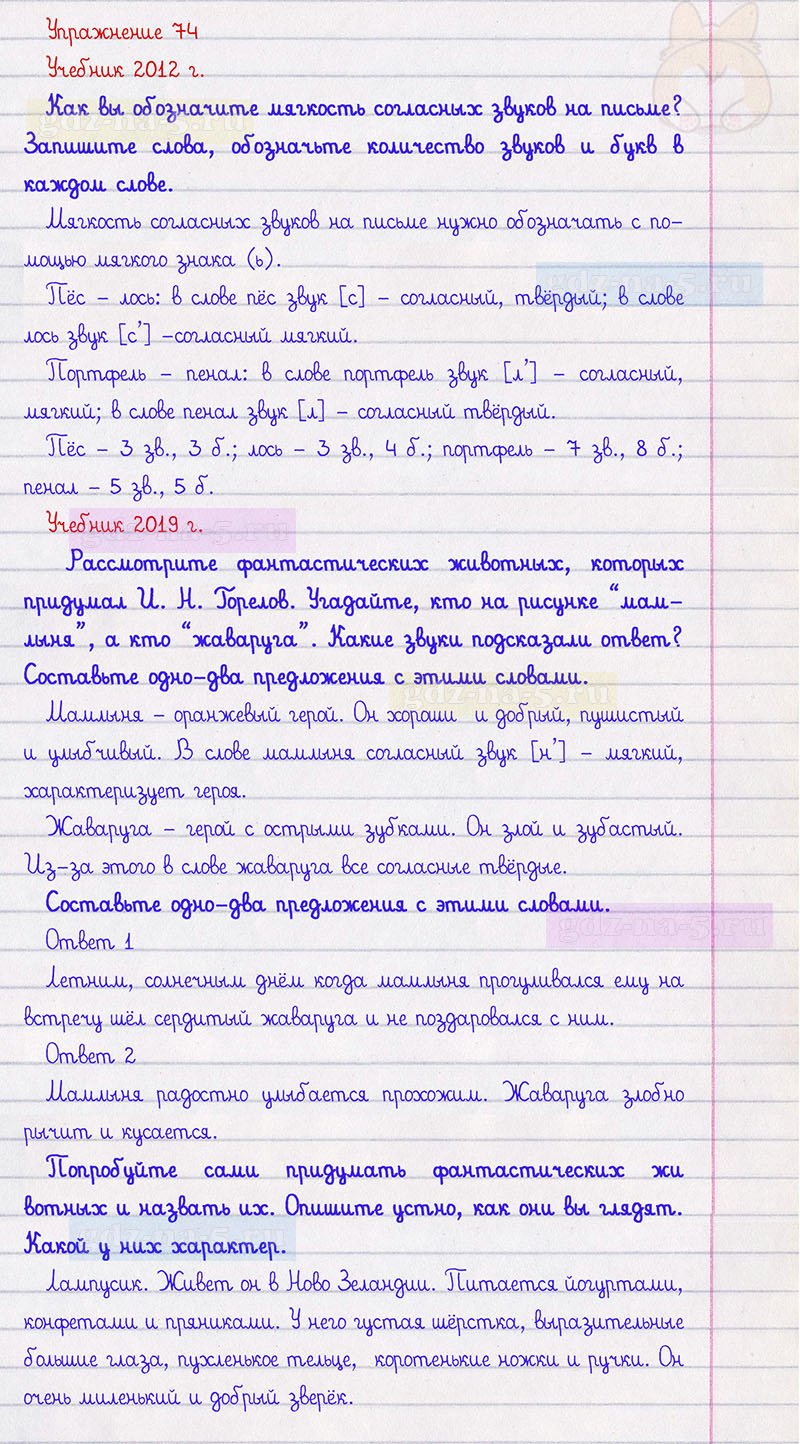 Упражнение 74
Учебник 2012 г.
Как вы обозначите мягкость согласных звуков на письме?
Запишите слова, обозначьте количество звуков и букв в
каждом слове.
Мягкость согласных звуков на письме нужно обозначать с по-
мощью мягкого знака (ь).
Пёс - лось: в слове пёс звук [с] - согласный, твёрдый; в слове
лось звук [с'] -согласный мягкий.
Портфель - пенал: в слове портфель звук [л'] - согласный,
мягкий; в слове пенал звук [л] - согласный твёрдый.
Пёс - 3 зв., 3 б.; лось - 3 зв., 4 б.; портфель - 7 зв., 8 б.;
пенал - 5 зв., 5 б.
Учебник 2019 г.
Рассмотрите фантастических животных, которых
придумал И. Н. Горелов. Угадайте, кто на рисунке "мам-
лыня", а кто "жаваруга". Какие звуки подсказали ответ?
Составьте одно-два предложения с этими словами.
Мамлыня - оранжевый герой. Он хороши и добрый, пушистый
и улыбчивый. В слове мамлыня согласный звук [н'] - мягкий,
характеризует героя.
Жаваруга - герой с острыми зубками. Он злой и зубастый.
Из-за этого в слове жаваруга все согласные твёрдые.
Составьте одно-два предложения с этими словами.
Ответ 1
Летним, солнечным днём когда мамлыня прогуливался ему на
встречу шёл сердитый жаваруга и не поздаровался с ним.
Ответ 2
Мамлыня радостно улыбается прохожим. Жаваруга злобно
рычит и кусается.
Попробуйте сами придумать фантастических жи
вотных и назвать их. Опишите устно, как они вы глядят.
Какой у них характер.
Лампусик. Живет он в Ново Зеландии. Питается йогуртами,
конфетами и пряниками. У него густая шёрстка, выразительные
большие глаза, пухленькое тельце, коротенькие ножки и ручки. Он
очень миленький и добрый зверёк.
gdz-na-5.ru
gdz-na-5.ru
gdz-na-5.ru
gdz-na-5.ru
gdz-na-5.ru
gdz-na-5.ru